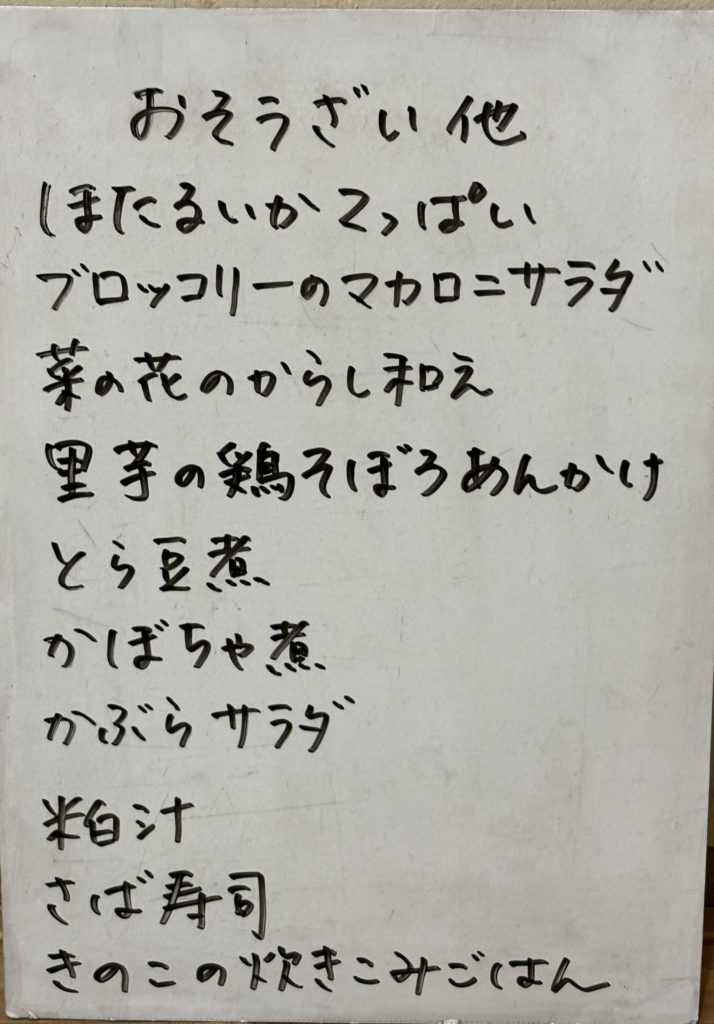 おそうざい 他
ほたるいかてっぱい
ブロッコリーのマカロニサラダ
菜の花のからし和え
里芋の鶏そぼろあんかけ
とら豆煮
かぼちゃ煮
かぶらサラダ
粕汁
さば寿司
きのこの炊きこみごはん